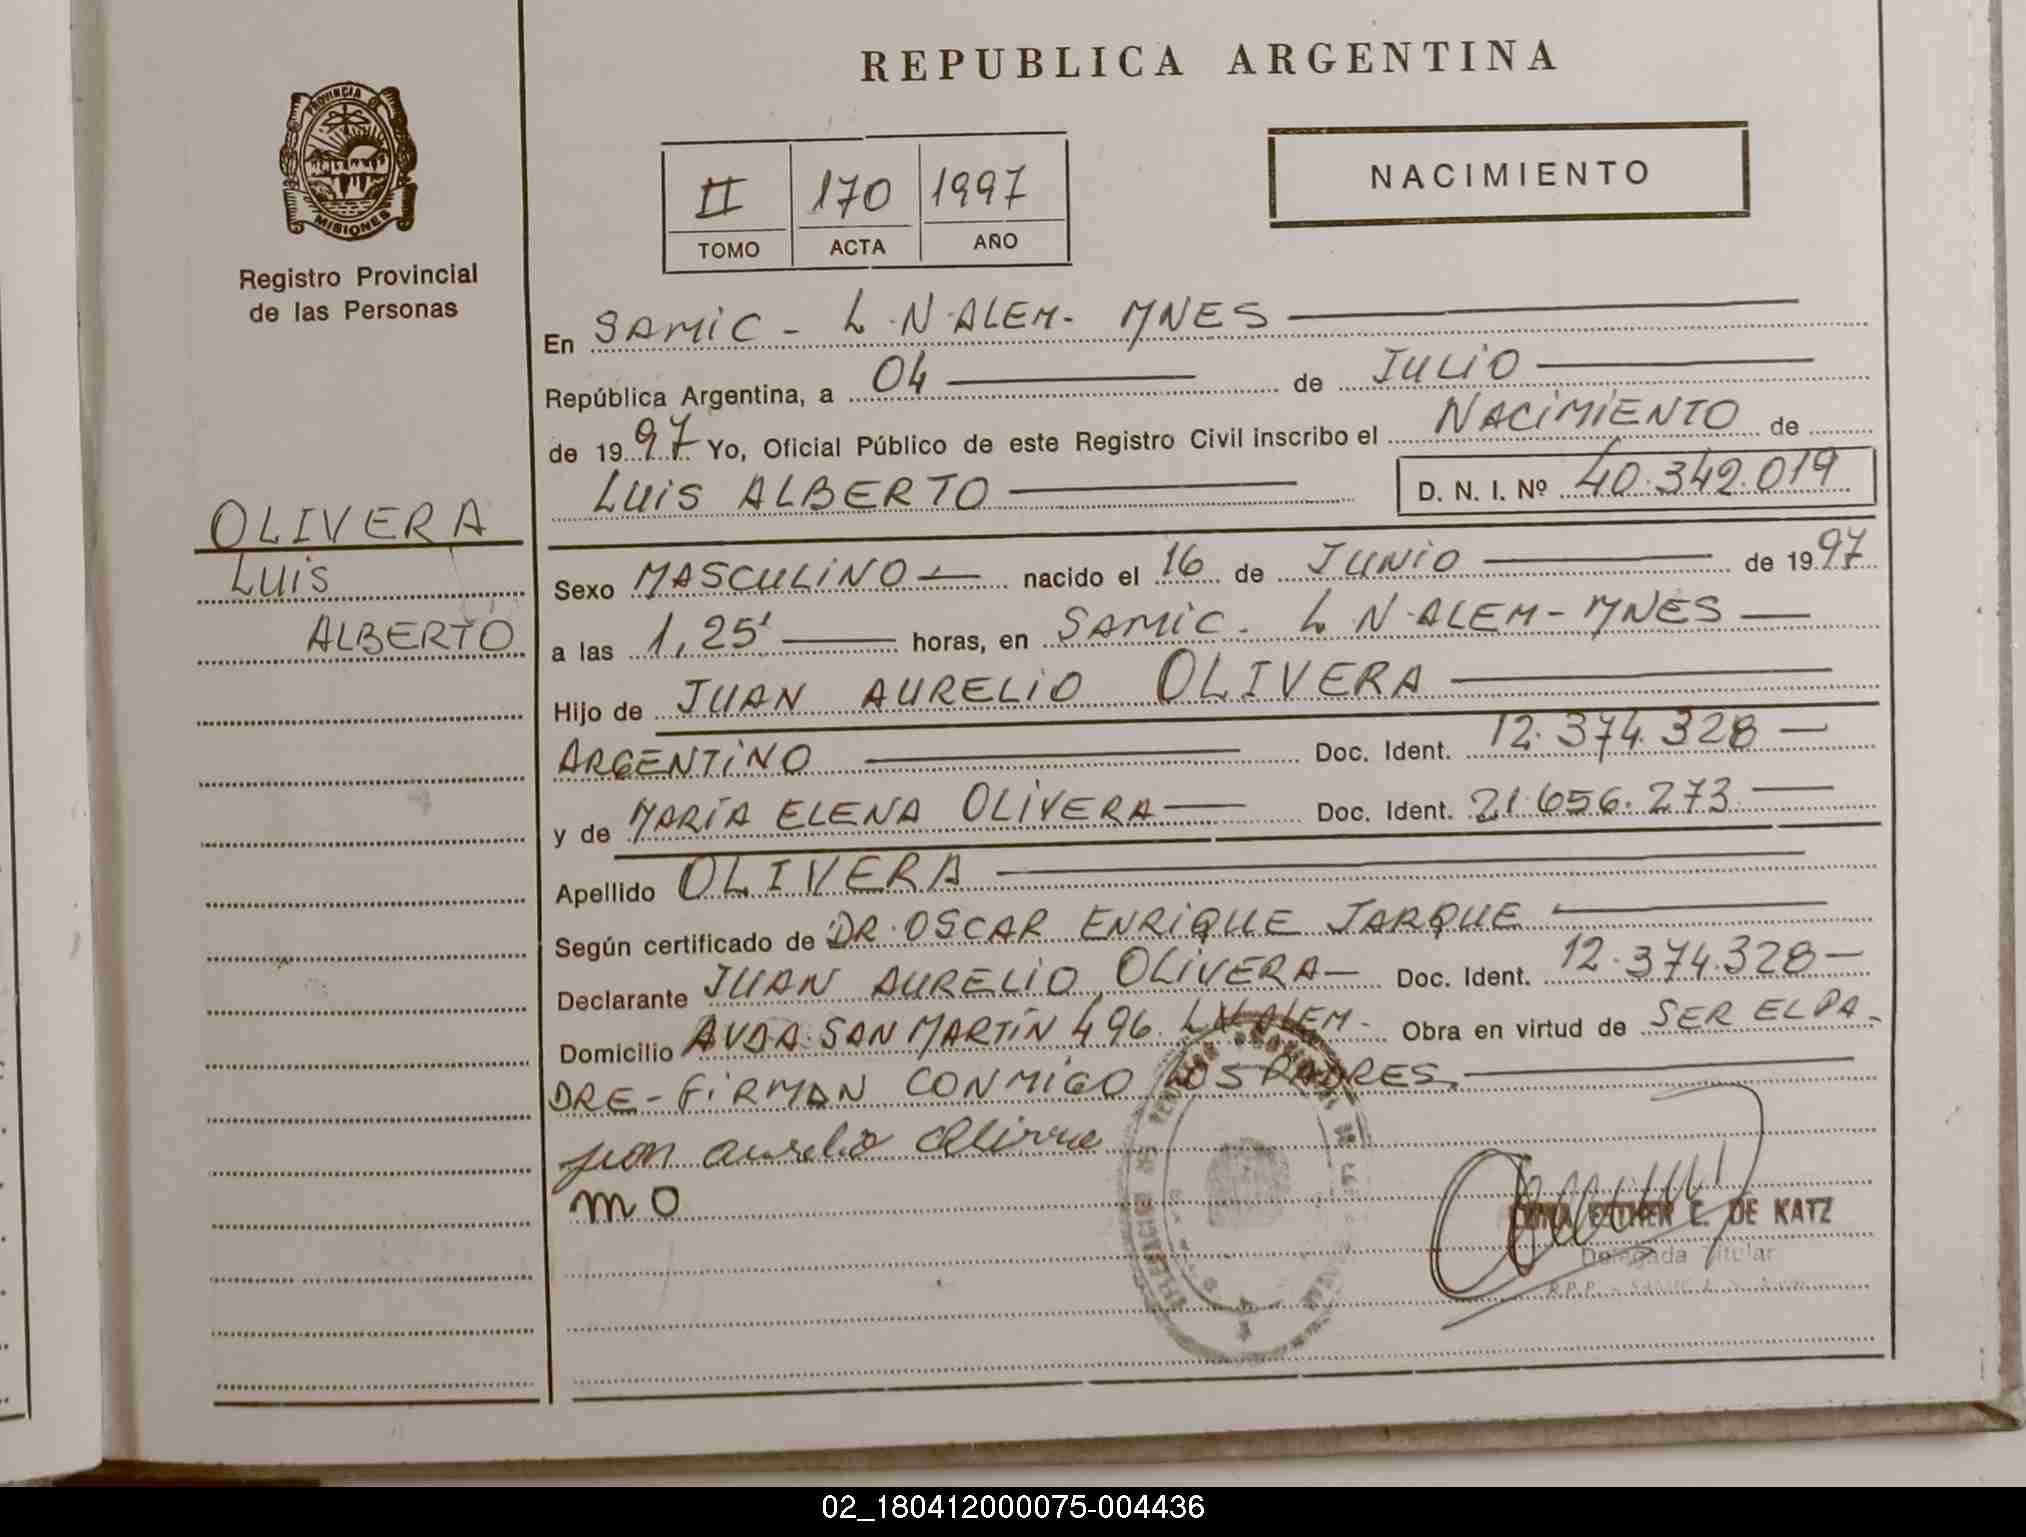 REPUBLICA ARGENTINA
PROVINCIA DE
MISIONES
Registro Provincial
de las Personas
II 170 1997
TOMO ACTA AÑO
NACIMIENTO
En SAMIC - L.N.ALEM- MNES
República Argentina, a 04 de JULIO
de 1997 Yo, Oficial Público de este Registro Civil inscribo el NACIMIENTO de
LUIS ALBERTO D. N. I. Nº 40.342.019
OLIVERA
LUIS
ALBERTO
Sexo MASCULINO nacido el 16 de JUNIO de 1997
a las 1,25' horas, en SAMIC - L.N.ALEM - MNES
Hijo de JUAN AURELIO OLIVERA
ARGENTINO Doc. Ident. 12.374.328
y de MARÍA ELENA OLIVERA Doc. Ident. 21.656.273
Apellido OLIVERA
Según certificado de DR. OSCAR ENRIQUE JARQUE
Declarante JUAN AURELIO OLIVERA Doc. Ident. 12.374.328
Domicilio AVDA. SAN MARTÍN 496. L.N.ALEM- Obra en virtud de SER EL PA-
DRE - FIRMAN CONMIGO LOS PADRES.
juan aurelio Olivera
m o
ESTHER E. DE KATZ
Delegada Titular
02_180412000075-004436